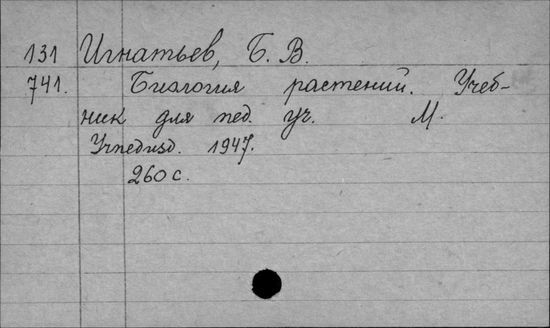 131 Игнатьев, Б. В.
741. Биология растений. Учеб-
ник для пед. уч. М.
Учпедизд. 1947.
260 с.